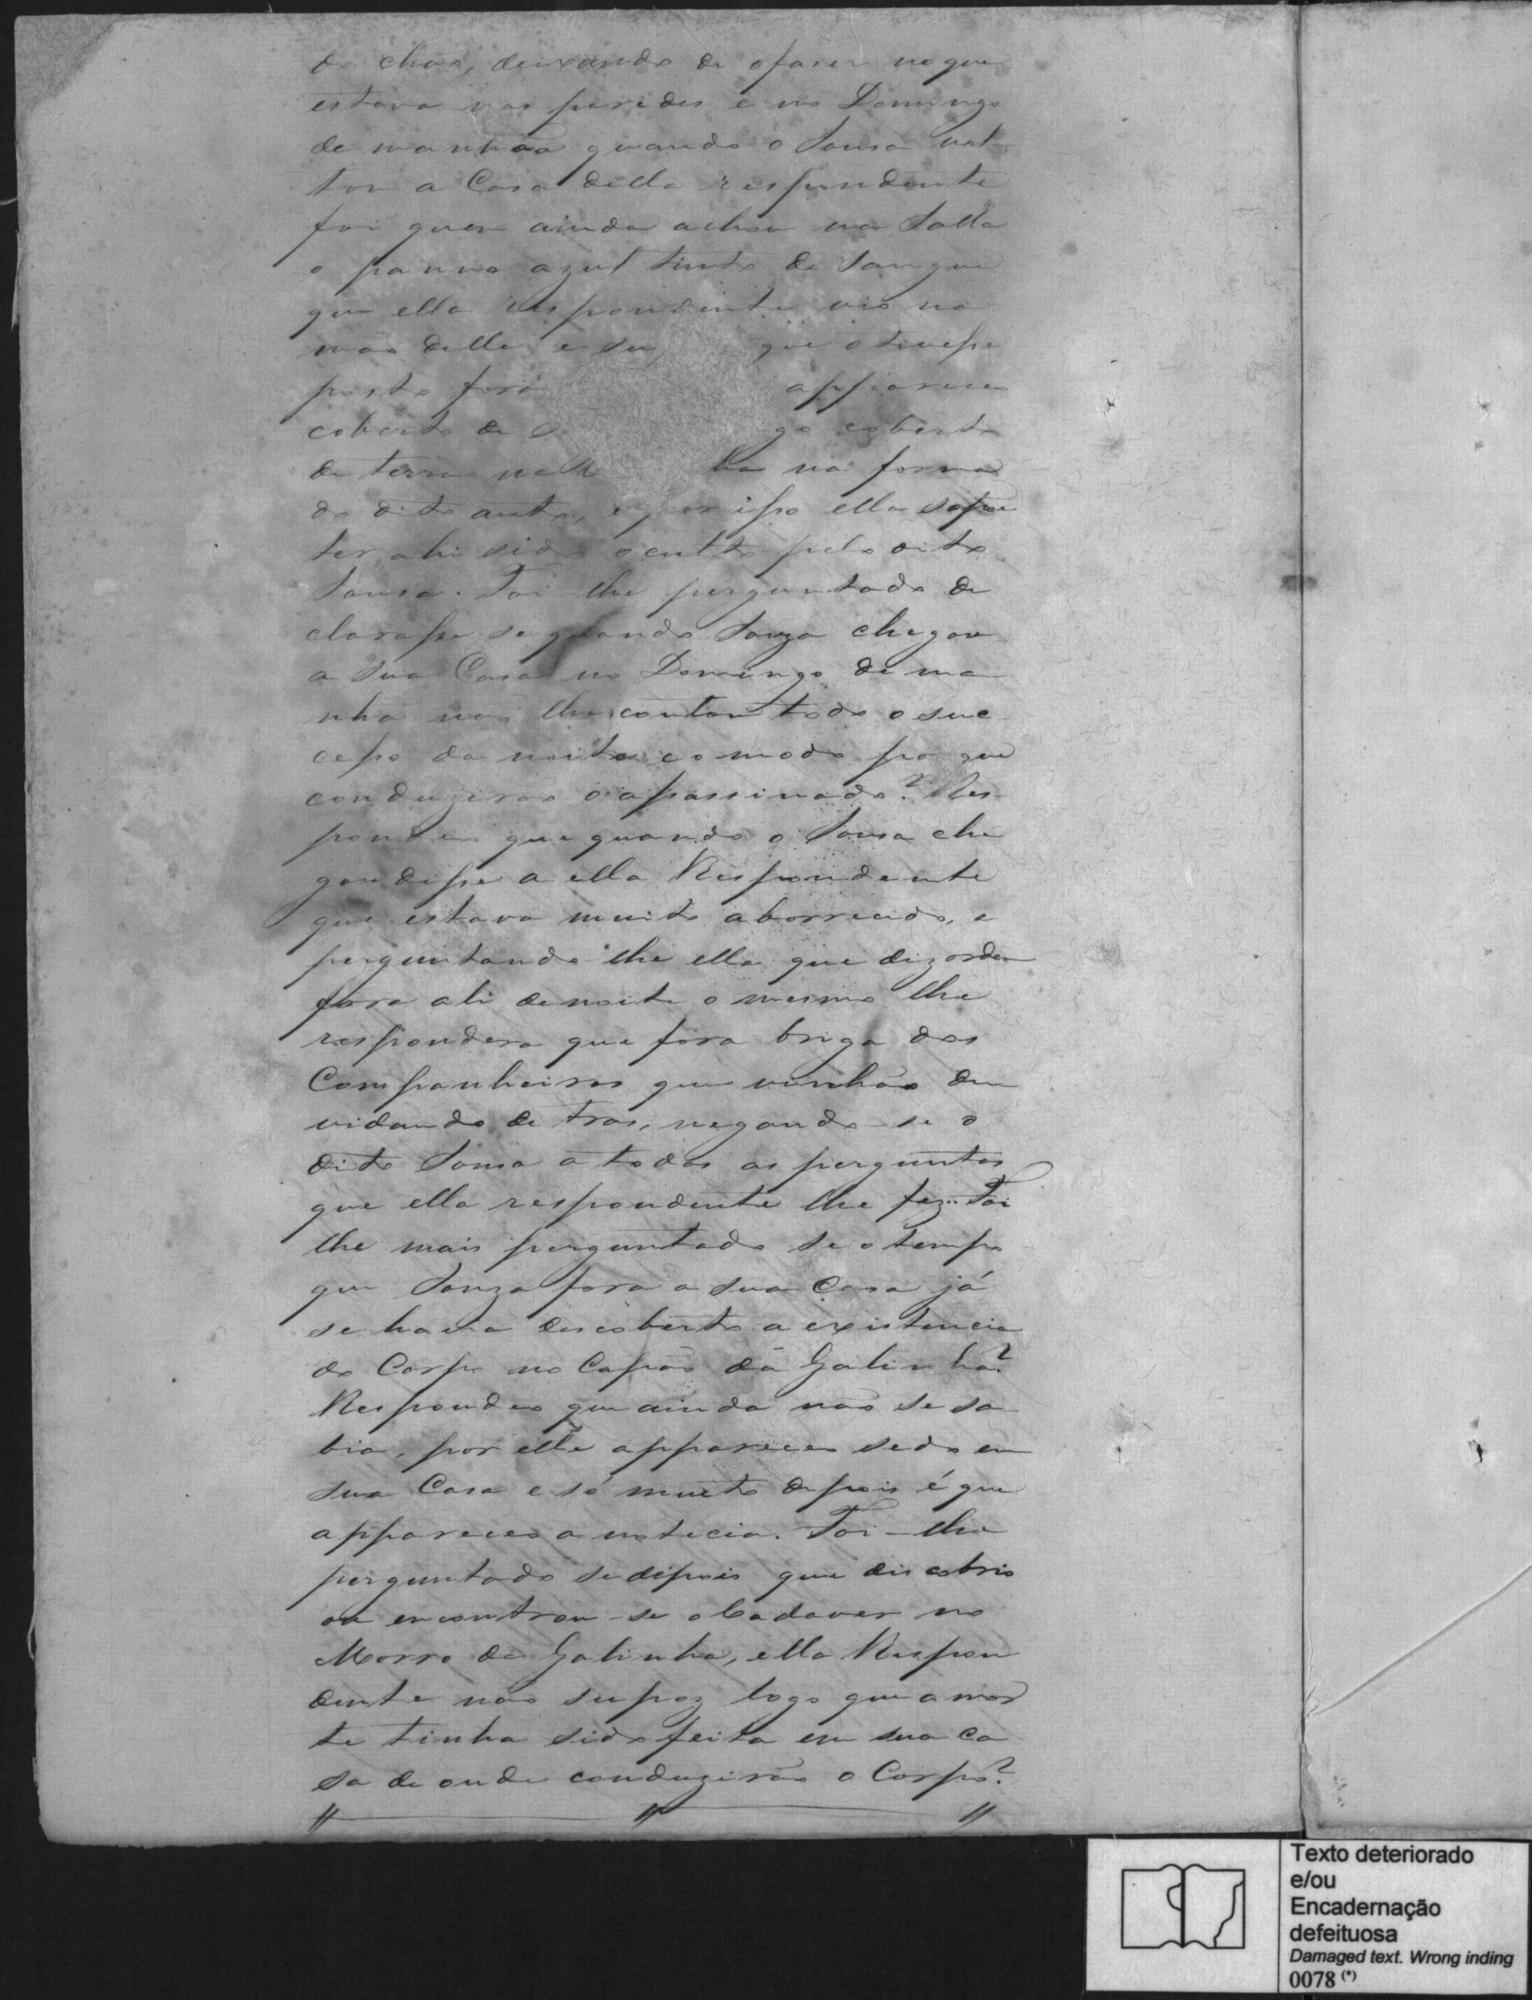 do chão, deixando de o faser no que
estava nas paredes e no Domingo
de manhaã quando o Sousa vol-
tou a Casa della respondente
foi quem ainda achou na Salla
o panno azul tinto de Sangue
que ella respondente vio na
mão delle e que o tivesse
posto fora appareceu
coberto de coberto
de terra na forma
do dito auto, e por isso ella sopoe
ter ahi sido occulto pelo dito
Sousa. Foi lhe perguntado de
clarasse se quando Souza chegou
a Sua Casa no Domingo de ma
nhã não lhe contou todo o suc
cesso da noite e o modo por que
conduzirão o assassinado? Res-
pondeu que quando o Sousa che
gou disse a ella Respondente
que estava muito aborrecido, e
perguntando lhe ella que dizordem
fora ali de noite o mesmo lhe
respondera que fora briga dos
Companheiros que vinhão du
vidando de tras, negando se o
dito Sousa a todas as perguntas
que ella respondente lhe fez. Foi
lhe mais perguntado se o tempo
que Souza fora a sua Casa já
se havia descoberto a existencia
do Corpo no Capão da Galinha?
Respondeo que ainda não se sa
bia, por elle apparecer sedo em
sua Casa e só muito depois é que
appareceo a noticia. Foi-lhe
perguntado se depois que discobrio
ou encontrou-se o Cadaver no
Morro da Galinha, ella Respon
dente não supoz logo que a mor
te tinha sido feita em sua Ca
sa de onde conduzirão o Corpo?
〃 〃 〃
Texto deteriorado
e/ou
Encadernação
defeituosa
Damaged text. Wrong inding
0078 (*)